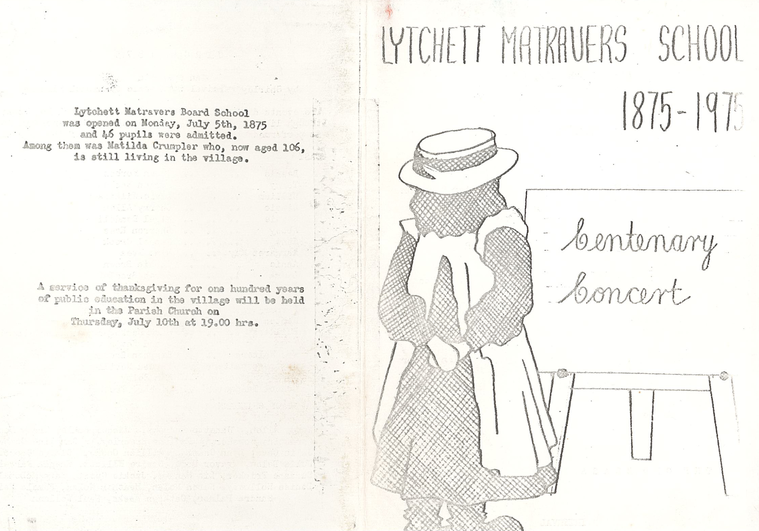 Lytchett Matravers Board School
was opened on Monday, July 5th, 1875
and 46 pupils were admitted.
Among them was Matilda Crumpler who, now aged 106,
is still living in the village.
A service of thanksgiving for one hundred years
of public education in the village will be held
in the Parish Church on
Thursday, July 10th at 19.00 hrs.
LYTCHETT MATRAVERS SCHOOL
1875-1975
Centenary
Concert